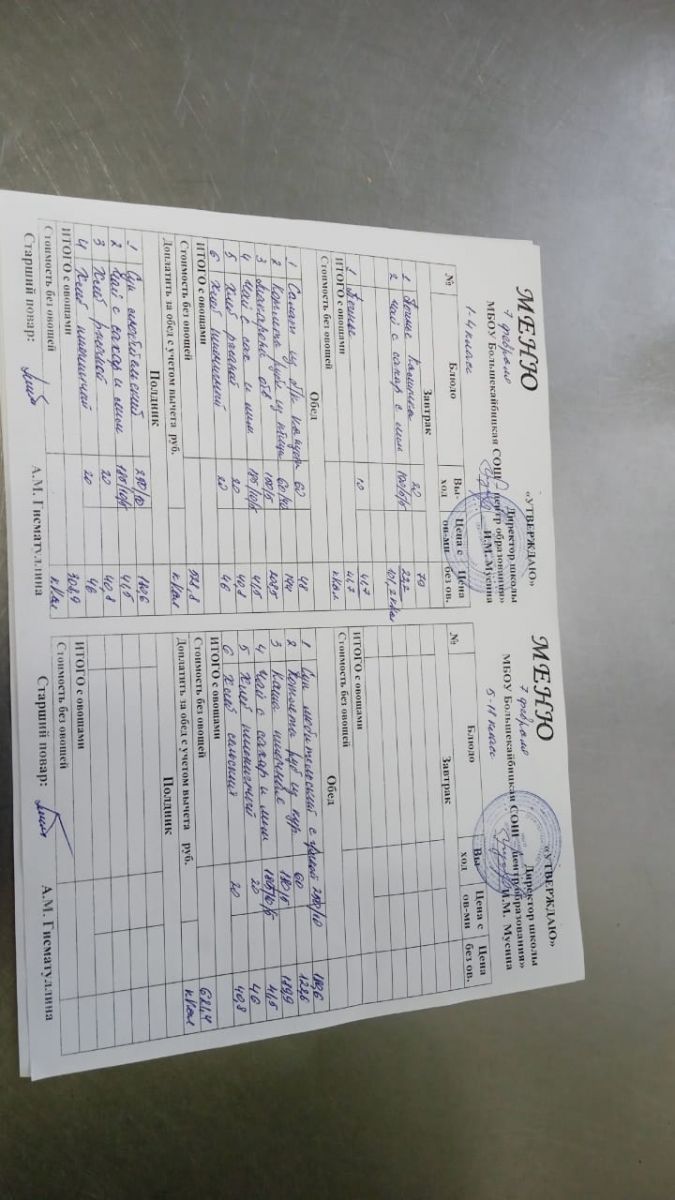 «УТВЕРЖДАЮ»
Директор школы
МБОУ Большекайбицкая СОШ центр образования»
И.М. Мусина
МЕНЮ
7 февраля
1-4 класс
№ Блюдо Вы-ход Цена с ов-ми Цена без ов.
Завтрак
1 20 79
2 Чай с сахар с лим 23,2
101,2 ккал
1 10 44,7
ИТОГО с овощами 44,7
Стоимость без овощей ккал
Обед
1 Салат из капуст 60 48
2 Котлета руб из птицы 144
3 Макароны отв 180/5 203,5
4 Чай с сах и лим 41,5
5 Хлеб ржаной 20 40,8
6 Хлеб пшеничный 20 46
ИТОГО с овощами
Стоимость без овощей ккал
Доплатить за обед с учетом вычета руб.
Полдник
1 Суп 250/10
2 Чай с сахар и лим 41,5
3 Хлеб ржаной 20 40,8
4 Хлеб пшеничный 20 46
ИТОГО с овощами
Стоимость без овощей ккал
Старший повар: А.М. Гисматуллина
«УТВЕРЖДАЮ»
Директор школы
МБОУ Большекайбицкая СОШ центр образования»
И.М. Мусина
МЕНЮ
7 февраля
5-11 класс
№ Блюдо Вы-ход Цена с ов-ми Цена без ов.
Завтрак
ИТОГО с овощами
Стоимость без овощей
Обед
1 Суп любительский с 250/10
2 Котлета руб из кур 60 123,6
3 Каша пшенная 180/5
4 Чай с сахар и лим 41,5
5 Хлеб пшеничный 20 46
6 Хлеб сельский 20 40,8
ИТОГО с овощами
Стоимость без овощей 621,4 ккал
Доплатить за обед с учетом вычета руб.
Полдник
ИТОГО с овощами
Стоимость без овощей
Старший повар: А.М. Гисматуллина